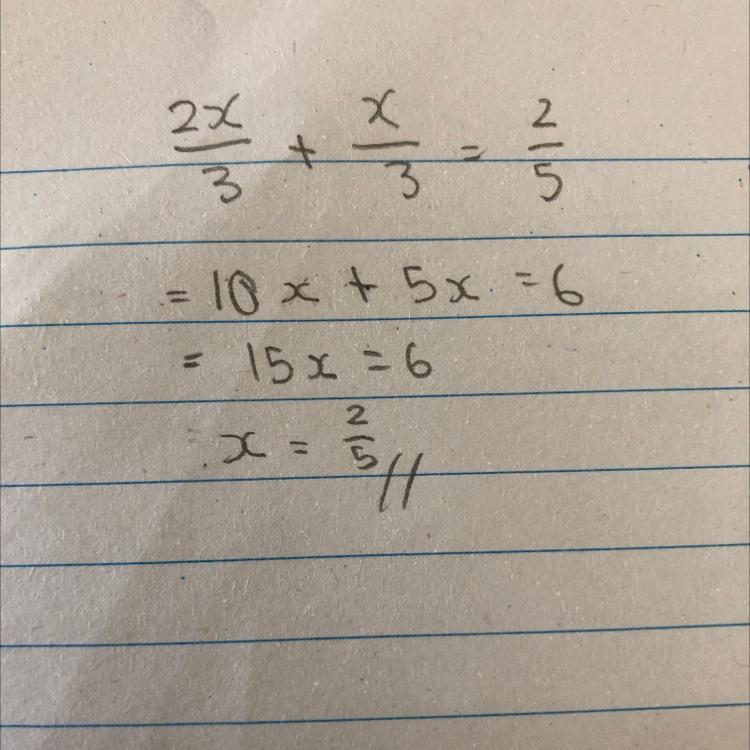 2x/3 + x/3 = 2/5
= 10x + 5x = 6
= 15x = 6
x = 2/5 //